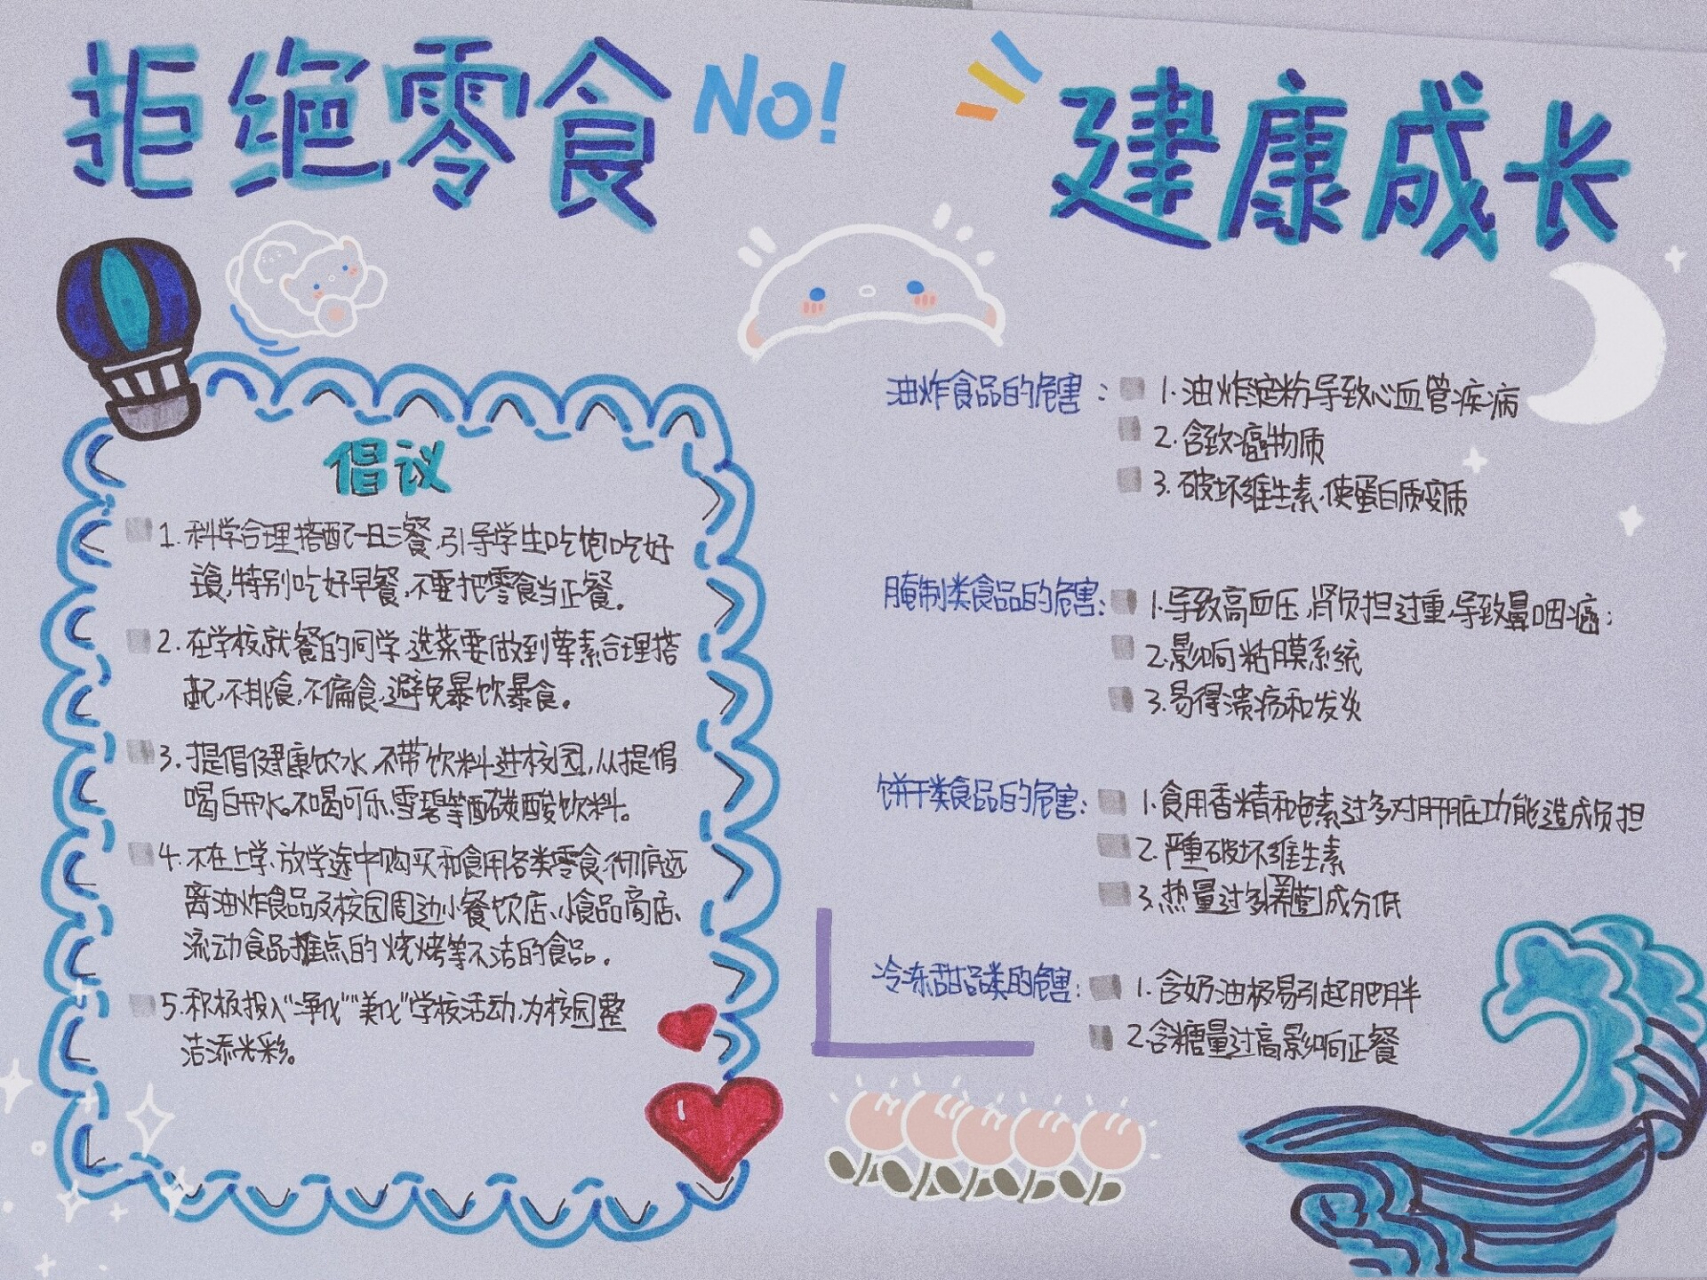 拒绝零食 No!
建康成长
倡议
1.科学合理搭配一日三餐,引导学生吃饱吃好
食,特别吃好早餐,不要把零食当正餐。
2.在学校就餐的同学,选菜要做到荤素合理搭
配,不挑食,不偏食,避免暴饮暴食。
3.提倡健康饮水,不带饮料进校园,从提倡
喝白开水。不喝可乐,雪碧等酸碳酸饮料。
4.不在上学、放学途中购买和食用各类零食,彻底远
离油炸食品及校园周边小餐饮店、小食品商店、
流动食品摊点的烧烤等不洁的食品。
5.积极投入“净化”“美化”学校活动,为校园整
洁添光彩。
油炸食品的危害:
1.油炸淀粉导致心血管疾病
2.含致癌物质
3.破坏维生素,使蛋白质变质
腌制类食品的危害:
1.导致高血压,肾负担过重,导致鼻咽癌;
2.影响粘膜系统
3.易得溃疡和发炎
饼干类食品的危害:
1.食用香精和色素过多对肝脏功能造成负担
2.严重破坏维生素
3.热量过多,营养成分低
冷冻甜品类的危害:
1.含奶油极易引起肥胖
2.含糖量过高影响正餐